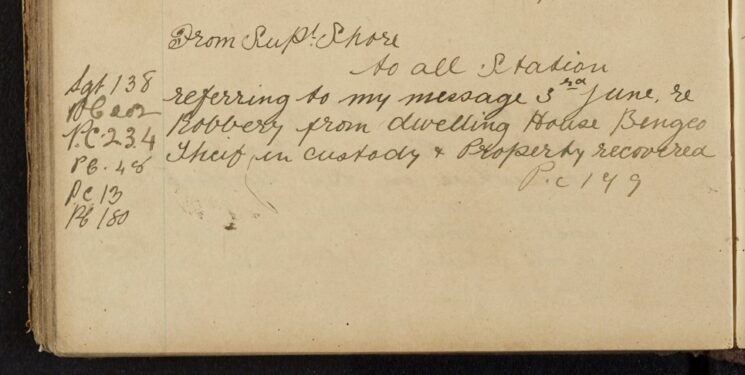 From Supt. Shore
to all Station
referring to my message 3rd June, re
Robbery from dwelling House Bengeo
Theif, in custody & Property recovered
P.c 149
Sgt 138
PC 202
P.C. 234
PC. 48
PC 13
PC 180